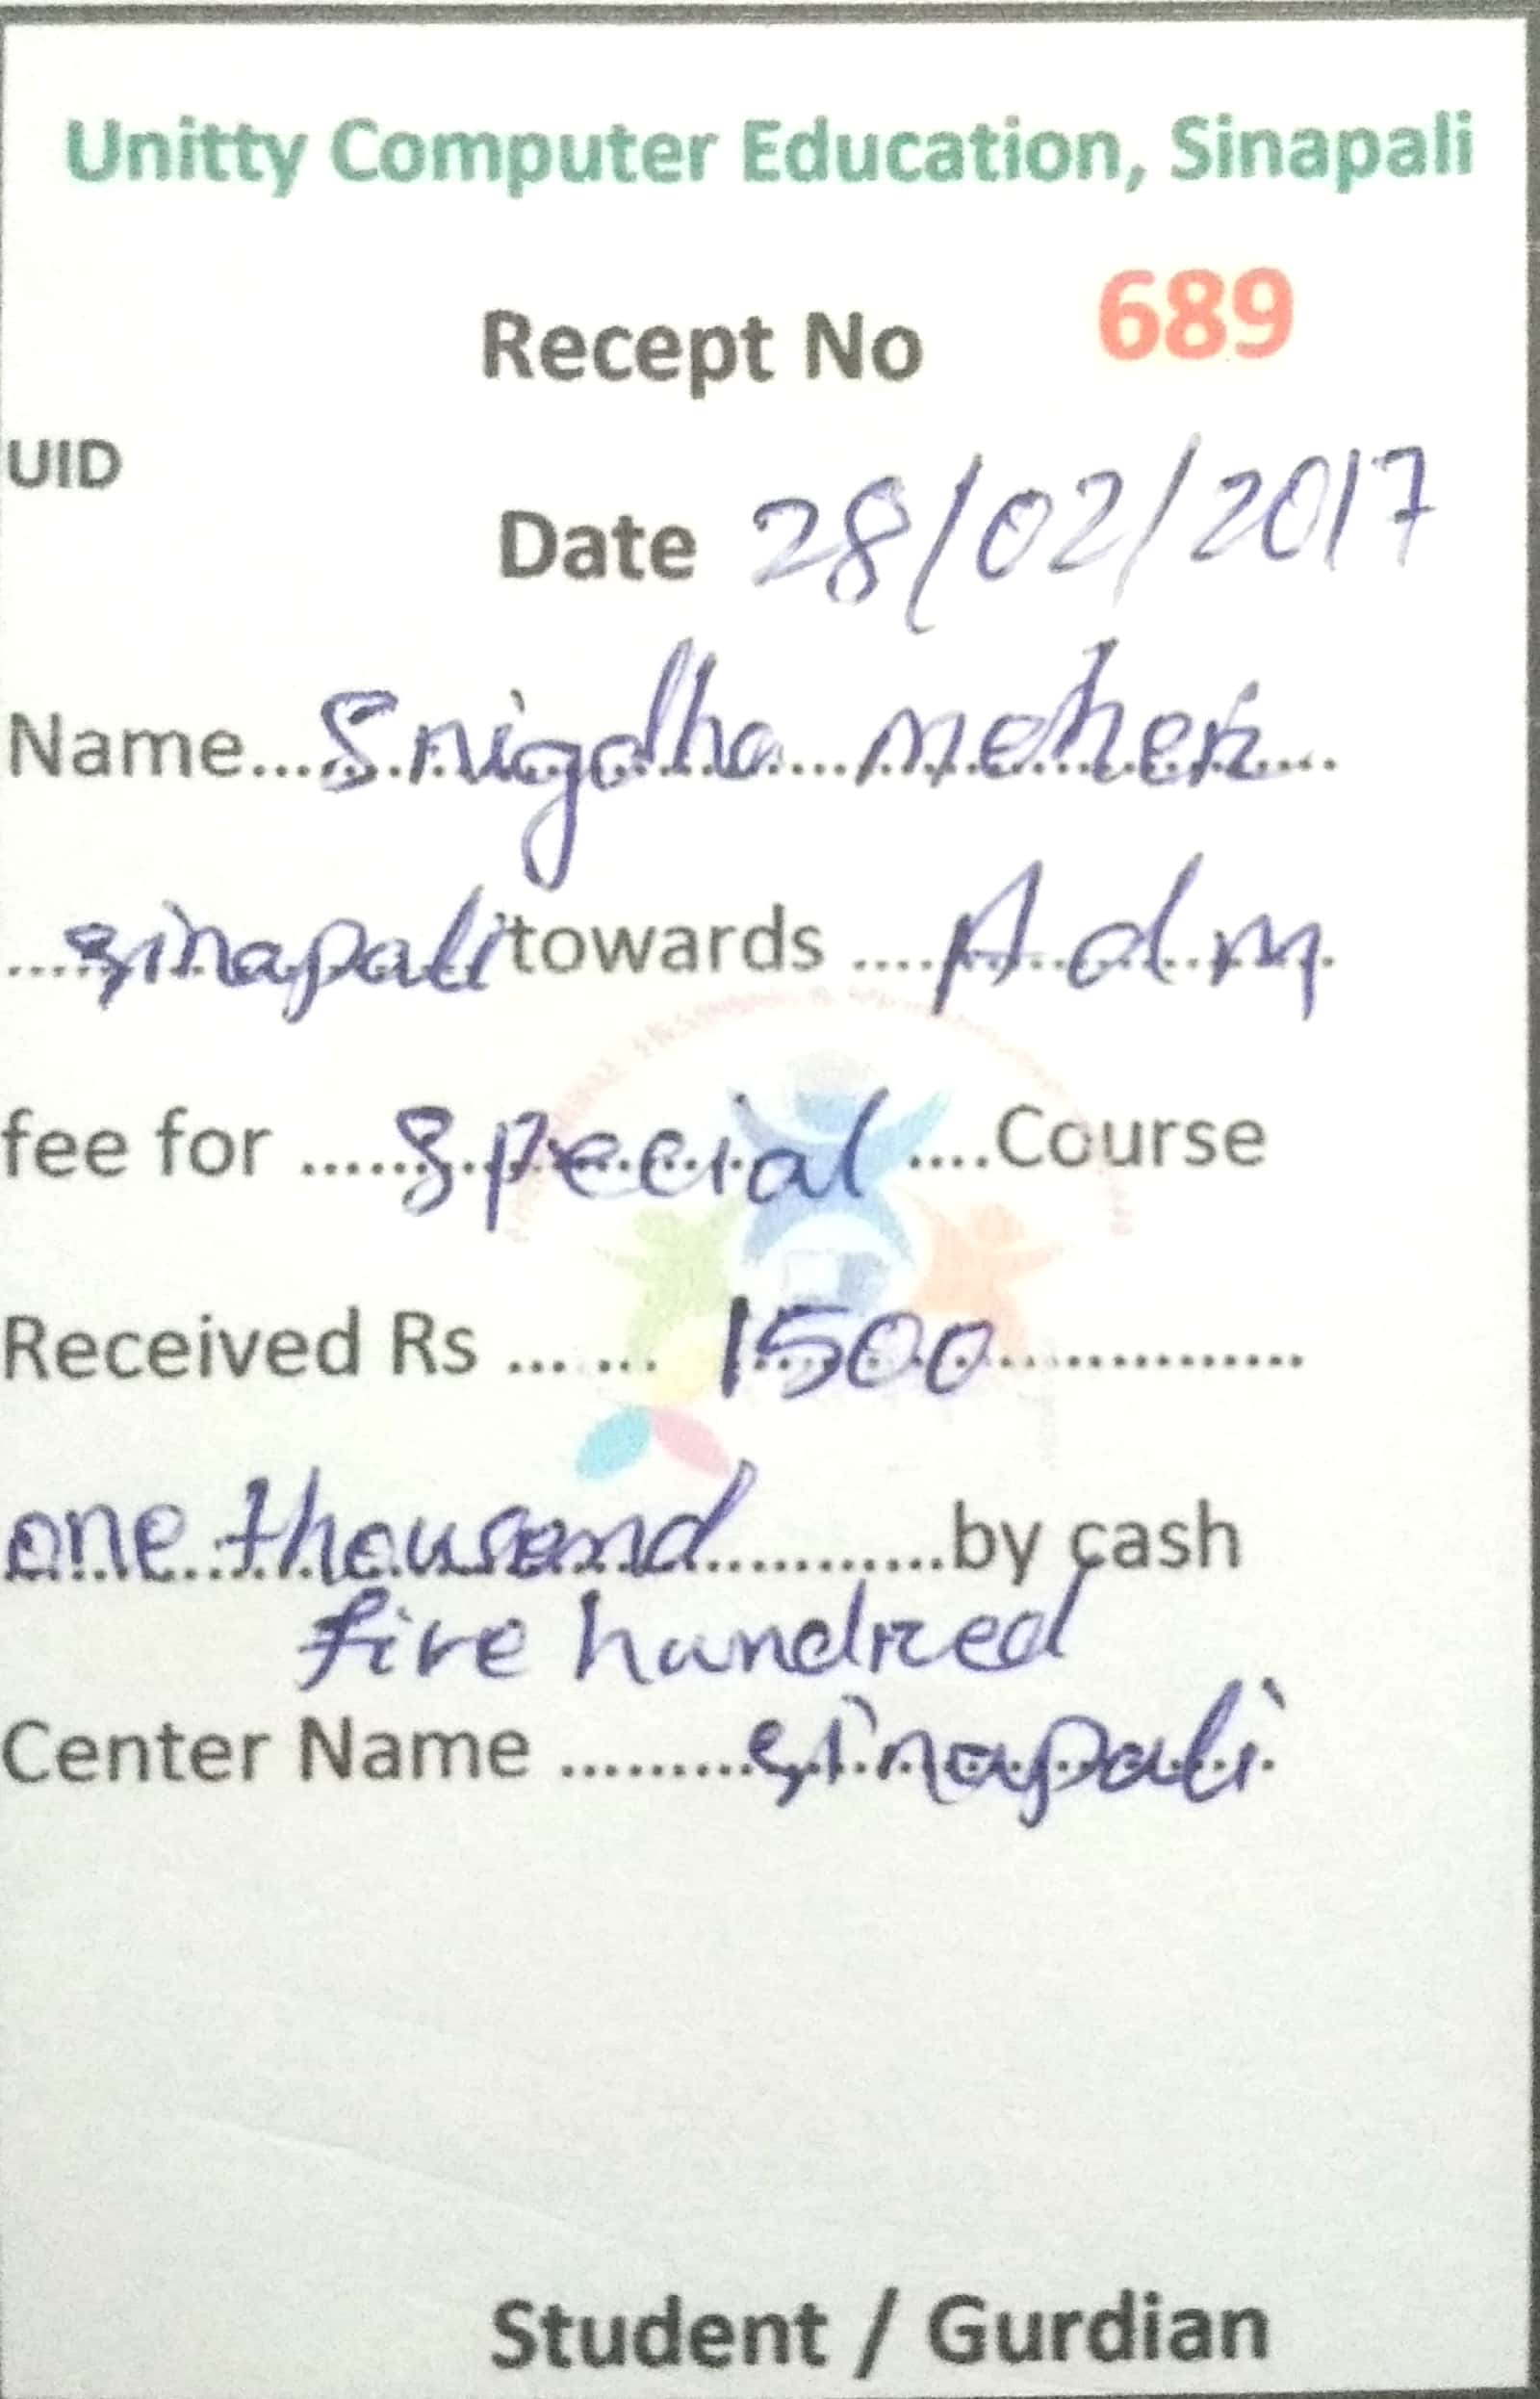 Unitty Computer Education, Sinapali
Recept No 689
UID
Date 28/02/2017
Name...Snigdha meher...
....sinapali towards ....Adm
fee for ......special....Course
Received Rs ... ... 1500...............
one thousand............by cash
five hundred
Center Name .........sinapali
Student / Gurdian